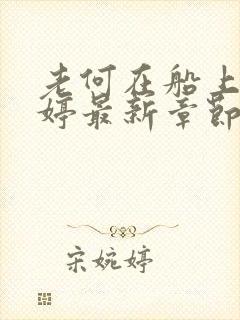 老何在船上
婷最新章节
宋婉婷